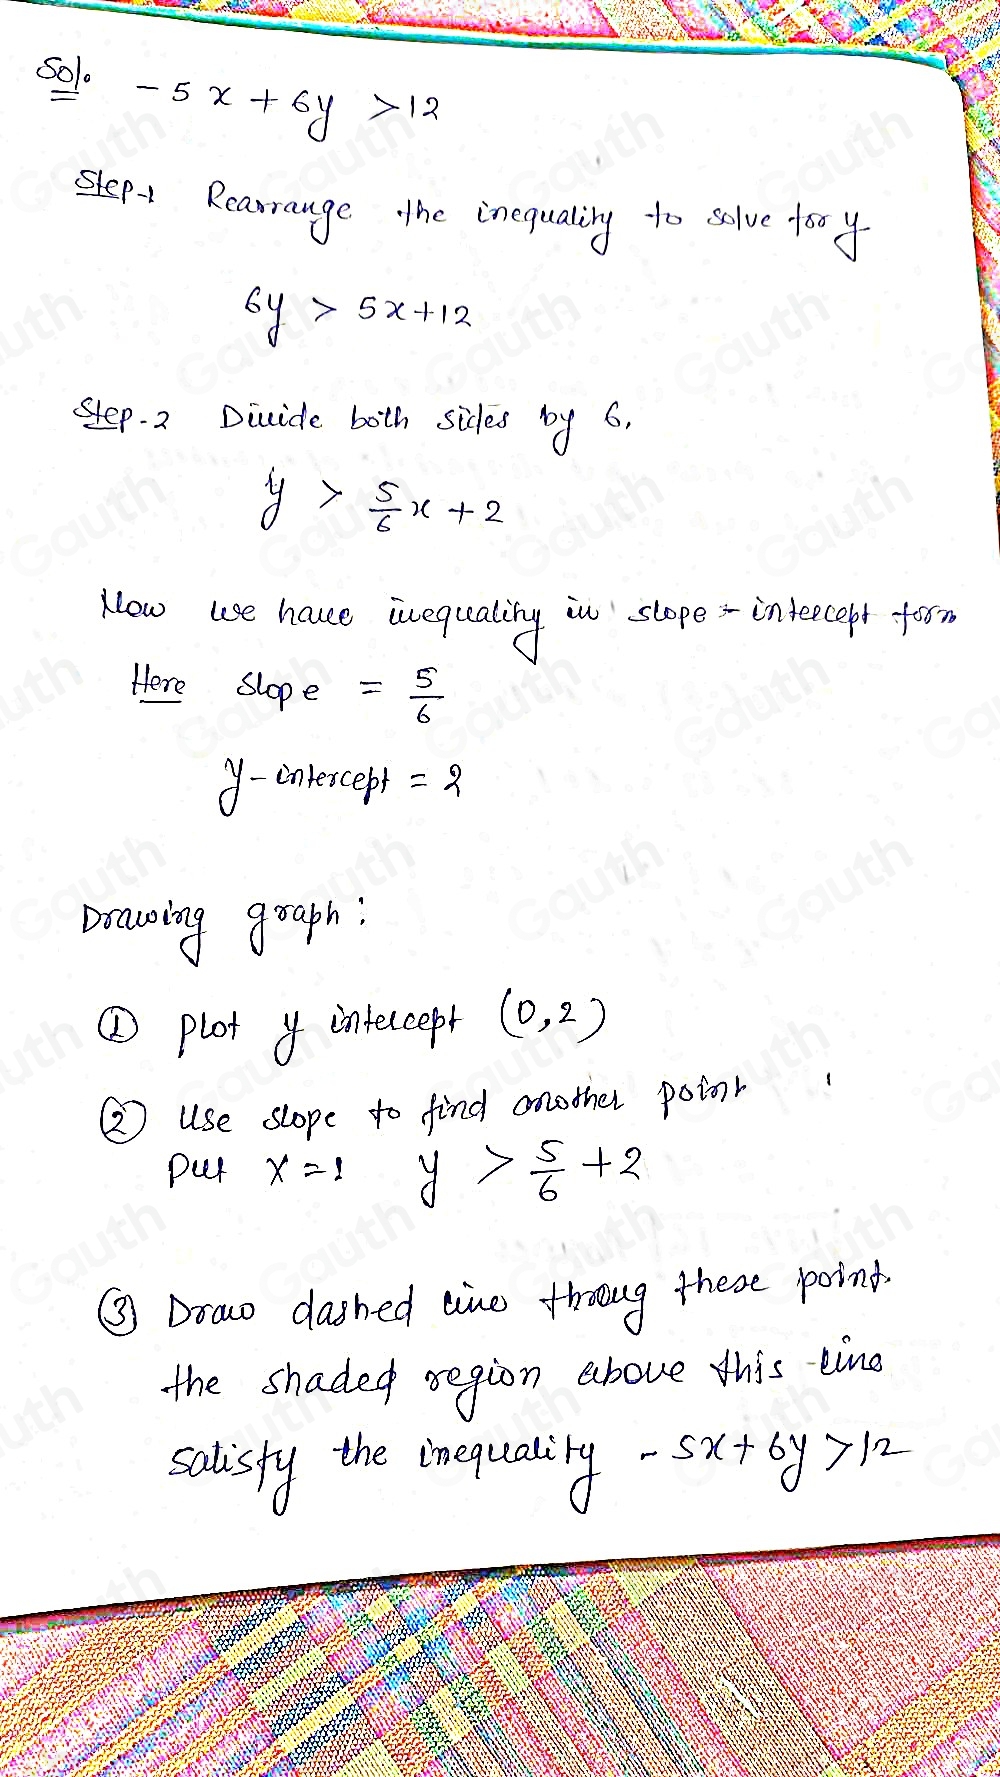 Sol.
-5x + 6y > 12
Step-1 Rearrange the inequality to solve for y
6y > 5x+12
Step-2 Divide both sides by 6.
y > 5/6 x + 2
Now we have inequality in slope-intercept form
Here slope = 5/6
y-intercept = 2
Drawing graph:
① plot y intercept (0,2)
② Use slope to find another point
Put x=1 y > 5/6 + 2
③ Draw dashed line throug these point.
the shaded region above this line
satisfy the inequality -5x+6y>12
Gauth